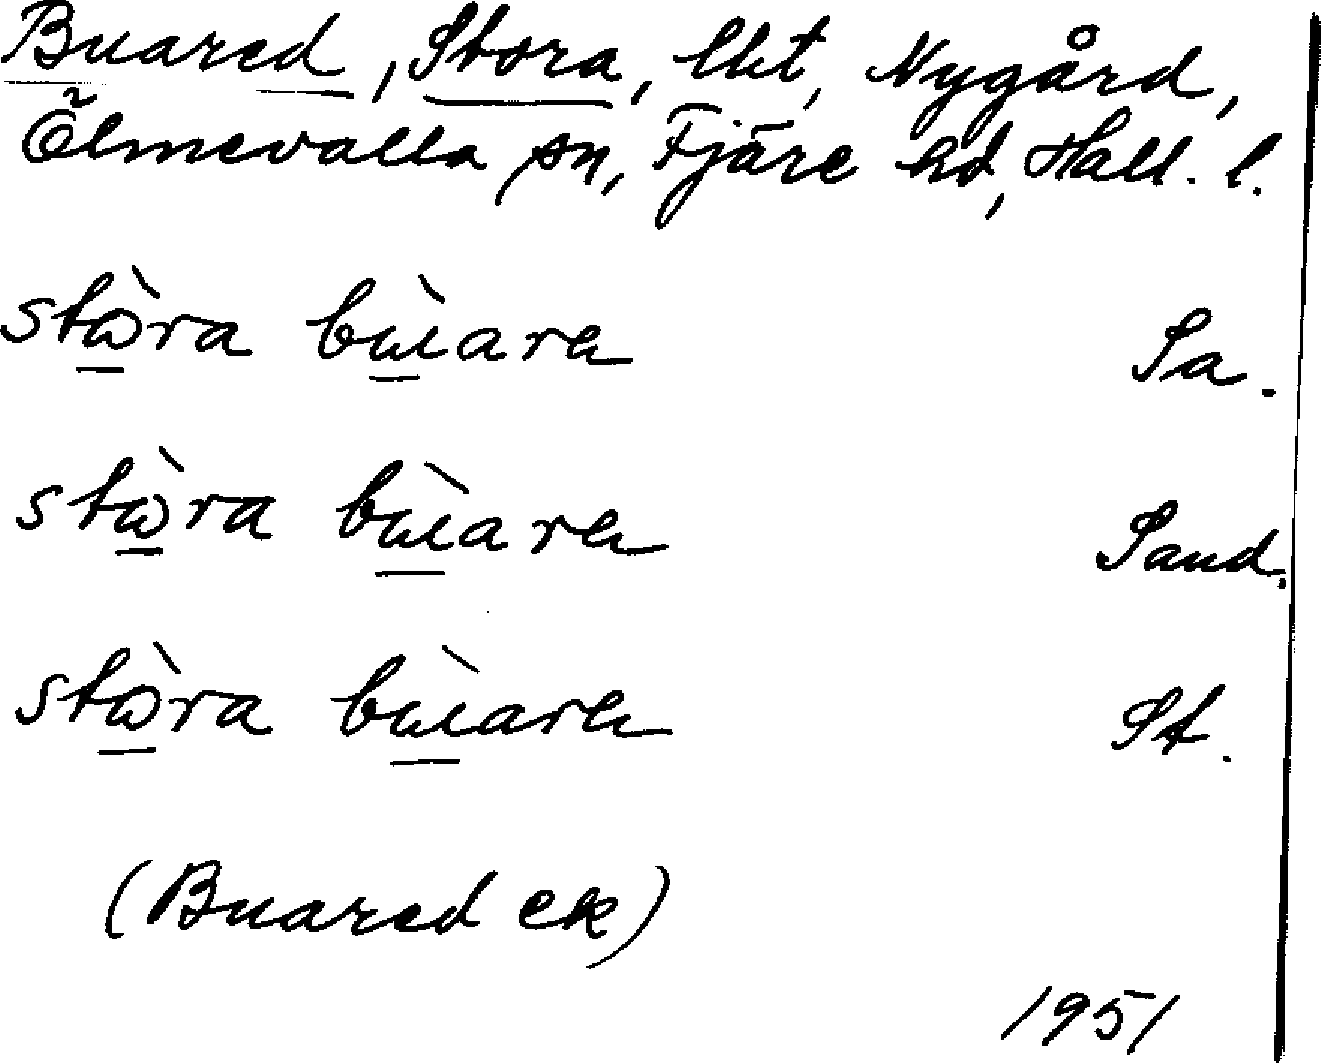 Buared, Stora, lht, Nygård,
Ölmevalla sn, Fjäre hd, Hall. l.
stὼra bùıara Sa.
stὼra bùıara Sand.
stὼra bùıara St.
(Buared ek)
1951